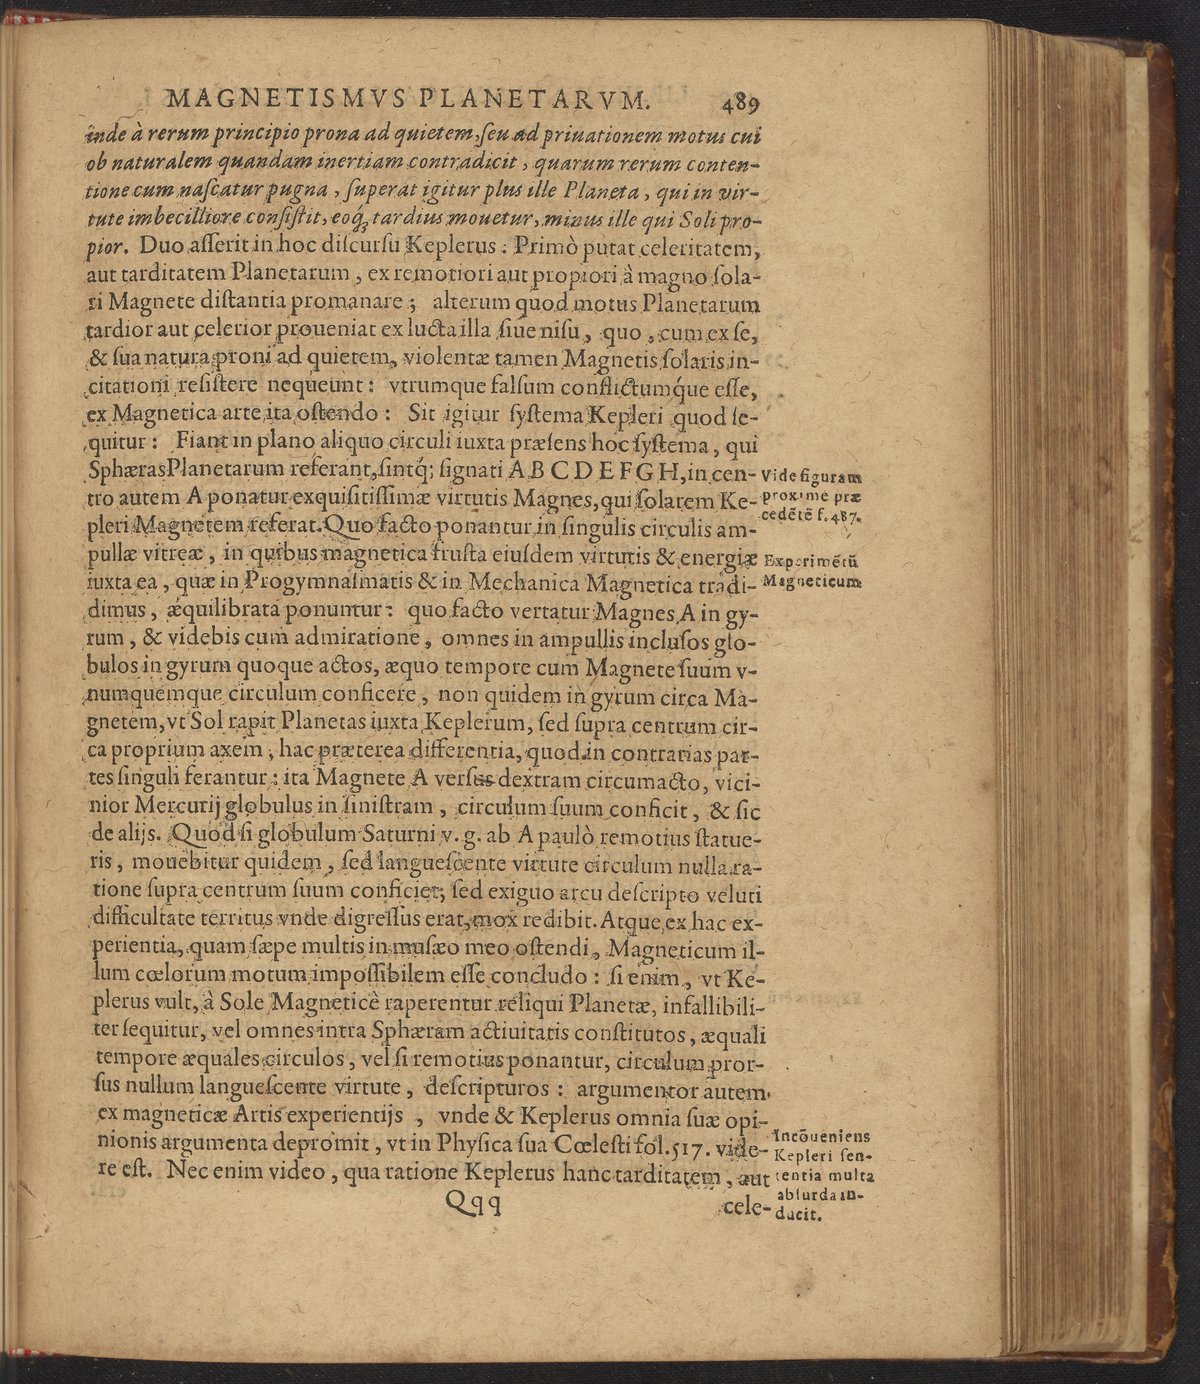 MAGNETISMVS PLANETARVM. 489
inde à rerum principio prona ad quietem, ſeu ad priuationem motus cui
ob naturalem quandam inertiam contradicit, quarum rerum conten-
tione cum naſcatur pugna, ſuperat igitur plus ille Planeta, qui in vir-
tute imbecilliore conſiſtit, eoq́; tardius mouetur, minus ille qui Soli pro-
pior. Duo aſſerit in hoc diſcurſu Keplerus: Primò putat celeritatem,
aut tarditatem Planetarum, ex remotiori aut propiori à magno ſola-
ri Magnete diſtantia promanare; alterum quod motus Planetarum
tardior aut celerior proueniat ex lucta illa ſiue niſu, quo, cum ex ſe,
& ſua natura proni ad quietem, violentæ tamen Magnetis ſolaris in-
citationi reſiſtere nequeunt: vtrumque falſum conflictumq́ue eſſe,
ex Magnetica arte ita oſtendo: Sit igitur ſyſtema Kepleri quod ſe-
quitur: Fiant in plano aliquo circuli iuxta præſens hoc ſyſtema, qui
Sphæras Planetarum referant, ſintq́; ſignati A B C D E F G H, in cen-
tro autem A ponatur exquiſitiſſimæ virtutis Magnes, qui ſolarem Ke-
pleri Magnetem referat. Quo facto ponantur in ſingulis circulis am-
pullæ vitreæ, in quibus magnetica fruſta eiuſdem virtutis & energiæ
iuxta ea, quæ in Progymnaſmatis & in Mechanica Magnetica tradi-
dimus, æquilibrata ponuntur: quo facto vertatur Magnes A in gy-
rum, & videbis cum admiratione, omnes in ampullis incluſos glo-
bulos in gyrum quoque actos, æquo tempore cum Magnete ſuum v-
numquemque circulum conficere, non quidem in gyrum circa Ma-
gnetem, vt Sol rapit Planetas iuxta Keplerum, ſed ſupra centrum cir-
ca proprium axem, hac præterea differentia, quod in contrarias par-
tes ſinguli ferantur: ita Magnete A verſus dextram circumacto, vici-
nior Mercurij globulus in ſiniſtram, circulum ſuum conficit, & ſic
de alijs. Quod ſi globulum Saturni v. g. ab A paulò remotius ſtatue-
ris, mouebitur quidem, ſed langueſcente virtute circulum nulla ra-
tione ſupra centrum ſuum conficiet; ſed exiguo arcu deſcripto veluti
difficultate territus vnde digreſſus erat, mox redibit. Atque ex hac ex-
perientia, quam ſæpe multis in muſæo meo oſtendi, Magneticum il-
lum cœlorum motum impoſſibilem eſſe concludo: ſi enim, vt Ke-
plerus vult, à Sole Magneticè raperentur reliqui Planetæ, infallibili-
ter ſequitur, vel omnes intra Sphæram actiuitatis conſtitutos, æquali
tempore æquales circulos, vel ſi remotius ponantur, circulum pror-
ſus nullum langueſcente virtute, deſcripturos: argumentor autem
ex magneticæ Artis experientijs, vnde & Keplerus omnia ſuæ opi-
nionis argumenta depromit, vt in Phyſica ſua Cœleſti fol. 517. vide-
re eſt. Nec enim video, qua ratione Keplerus hanc tarditatem, aut
Qqq cele-
Vide figuram
proxime præ
cedẽtẽ f. 487.
Experimẽtũ
Magneticum
Incõueniens
Kepleri ſen-
tentia multa
abſurda in-
ducit.